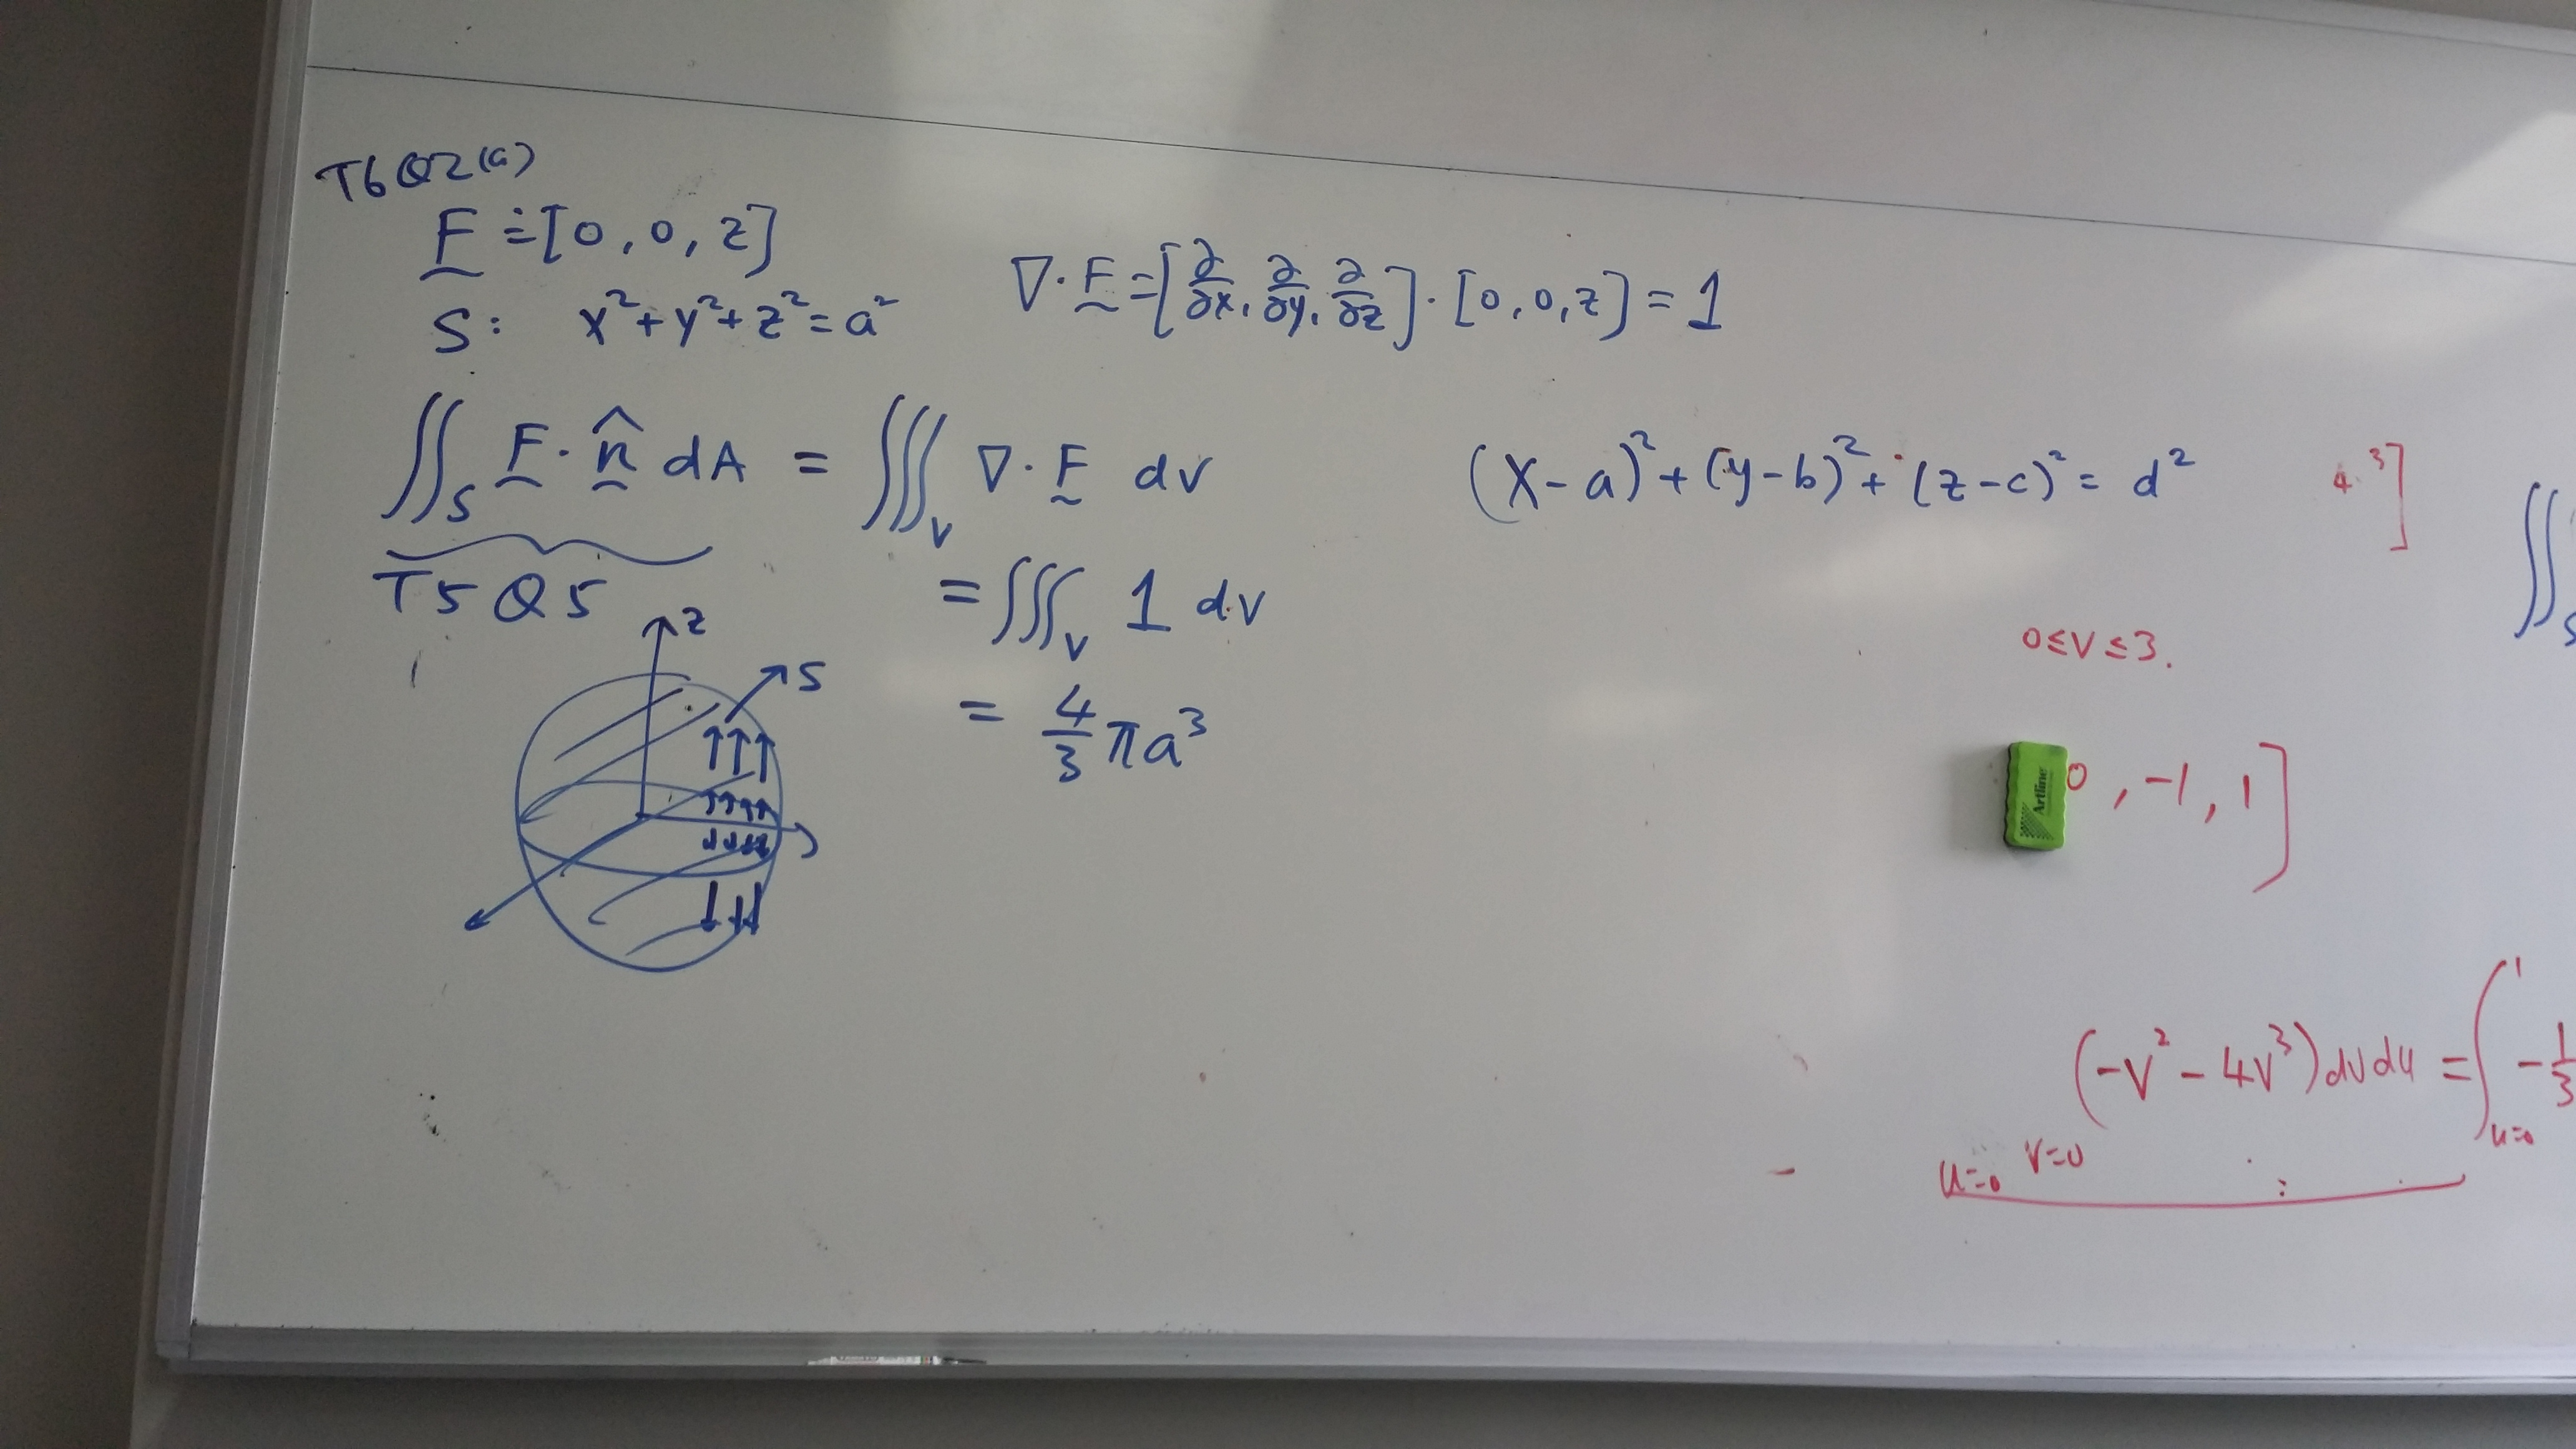 T6Q2(a)
F = [0, 0, z]
S: x² + y² + z² = a²
∇ · F = [∂/∂x, ∂/∂y, ∂/∂z] · [0, 0, z] = 1
∬_S F · n̂ dA = ∭_V ∇ · F dV
T5Q5
= ∭_V 1 dV
= 4/3 πa³
z
S
(x-a)² + (y-b)² + (z-c)² = d²
∬_S
0≤V≤3.
0, -1, 1]
Artline
(-V² - 4V³) dV du = ∫ - 1/3
1
u=0
u=0 V=0